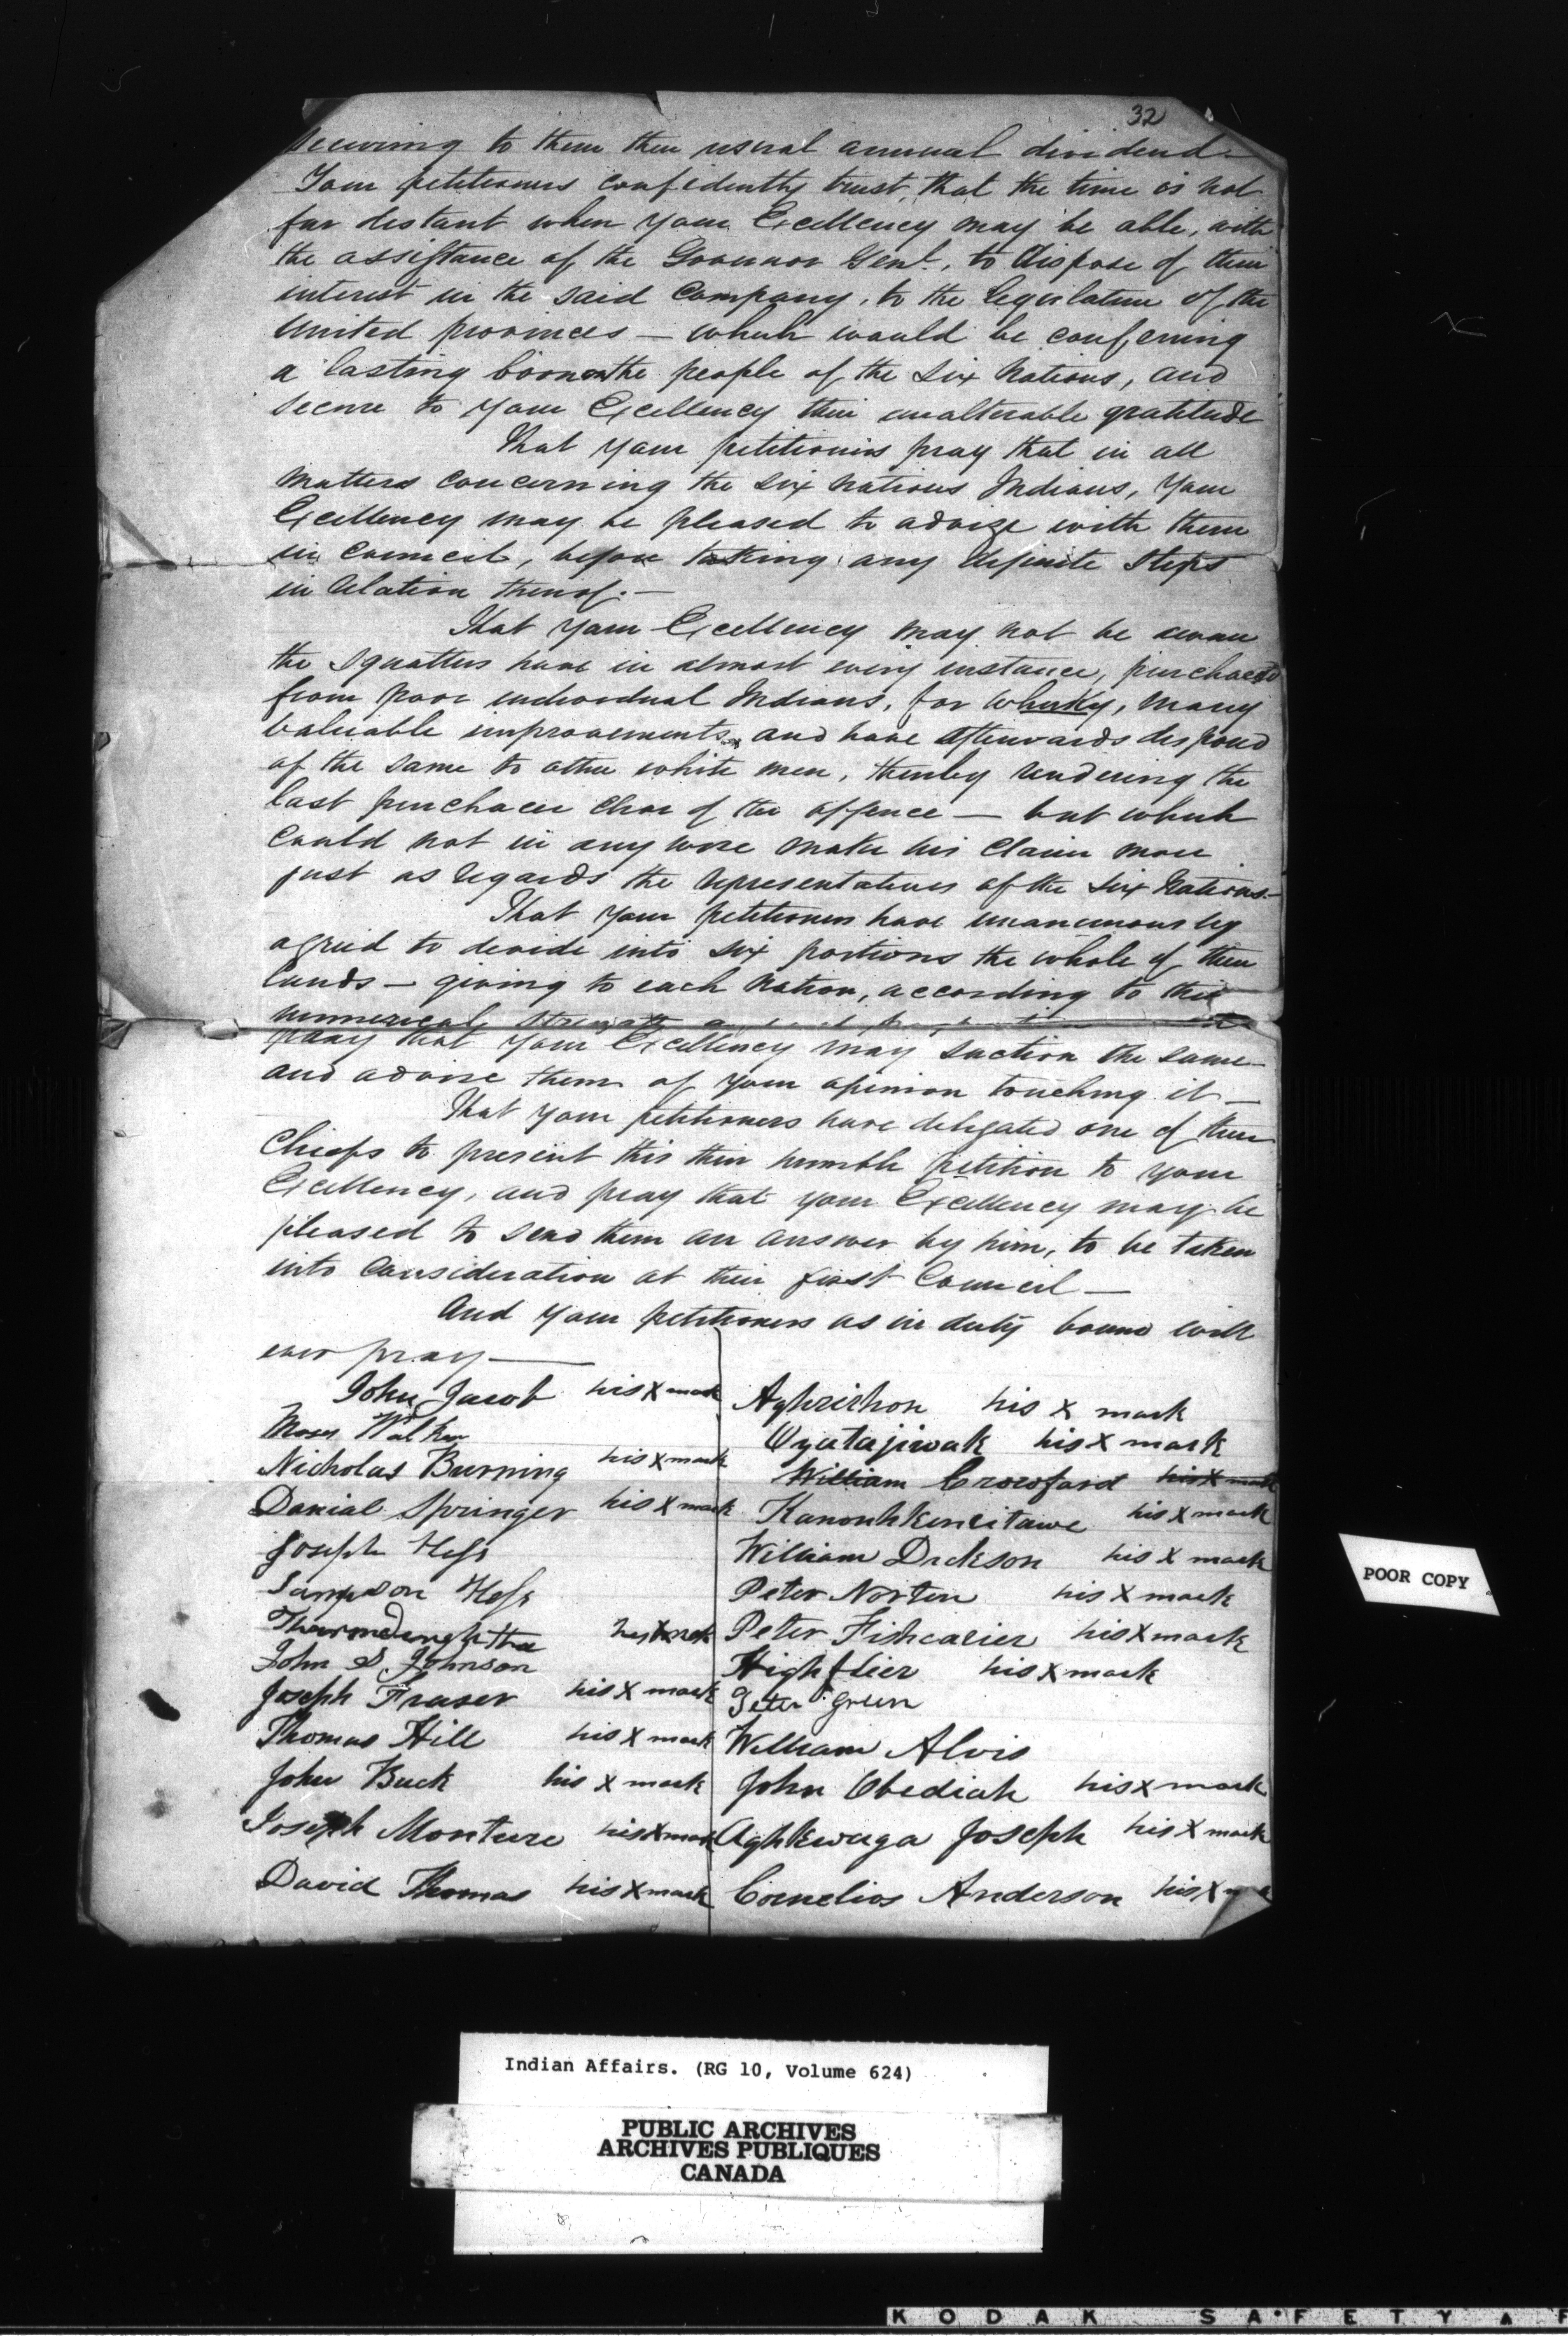 32
securing to them their usual annual dividend —
Your petitioners confidently trust, that the time is not
far distant when your Excellency may be able, with
the assistance of the Governor Genl., to dispose of their
interest in the said Company, to the legislature of the
United provinces — which would be conferring
a lasting boon on the people of the Six Nations, and
secure to your Excellency their unalterable gratitude
That your petitioners pray that in all
matters concerning the Six Nations Indians, your
Excellency may be pleased to advize with them
in Council, before taking any definite steps
in relation thereof. —
That your Excellency may not be aware
the squatters have in almost every instance, purchased
from poor individual Indians, for whisky, many
valuable improvements, and have afterwards disposed
of the same to other white men, thereby rendering the
last purchacer clear of the offence — but which
could not in any wise make his claim more
just as regards the representatives of the Six Nations —
That your petitioners have unanimously
agreed to devide into six portions the whole of their
lands — giving to each Nation, according to their
numerical strength
pray that your Excellency may sanction the same
and advise them of your opinion touching it —
That your petitioners have delegated one of their
Chiefs to present this their humble petition to your
Excellency, and pray that your Excellency may be
pleased to send them an answer by him, to be taken
into consideration at their first Council —
And your petitioners as in duty bound will
ever pray —
John Jacob his X mark
Moses Walker
Nicholas Burning his X mark
Danial Springer his X mark
Joseph Hess
Sampson Hess
his X mark
John S. Johnson
Joseph Fraser his X mark
Thomas Hill his X mark
John Buck his X mark
Joseph Monture his X mark
David Thomas his X mark
Aghrishon his X mark
Oyatajiwak his X mark
William Crowford his X mark
Kanonhkeneitawe his X mark
William Dickson his X mark
Peter Norten his X mark
Peter Fishcarier his X mark
Highflier his X mark
Peter Green
William Alvis
John Obediah his X mark
Aghkwaga Joseph his X mark
Cornelios Anderson his X
POOR COPY
Indian Affairs. (RG 10, Volume 624)
PUBLIC ARCHIVES
ARCHIVES PUBLIQUES
CANADA
KODAK SAFETY